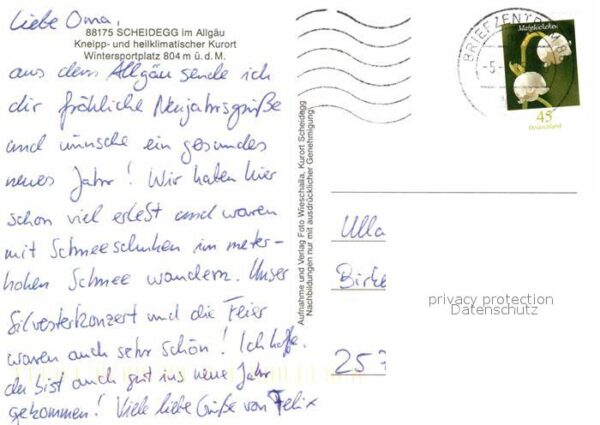 Liebe Oma,
88175 SCHEIDEGG im Allgäu
Kneipp- und heilklimatischer Kurort
Wintersportplatz 804 m ü. d. M.
aus dem Allgäu sende ich
dir fröhliche Neujahrsgrüße
und wünsche ein gesundes
neues Jahr! Wir haben hier
schon viel erlebt und waren
mit Schneeschuhen im meter-
hohen Schnee wandern. Unser
Silvesterkonzert und die Feier
waren auch sehr schön! Ich hoffe,
du bist auch gut ins neue Jahr
gekommen! Viele liebe Grüße von Felix
Aufnahme und Verlag Foto Wieschalla, Kurort Scheidegg
Nachbildungen nur mit ausdrücklicher Genehmigung
BRIEFZENTRUM 8
-5.
Maiglöckchen
45
Deutschland
Ulla
Birke
257
privacy protection
Datenschutz